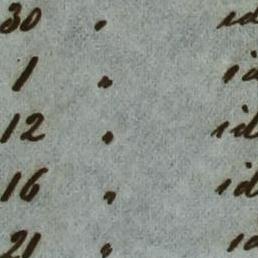 30 . id
1 . id
12 . id
16 . id
21 . id